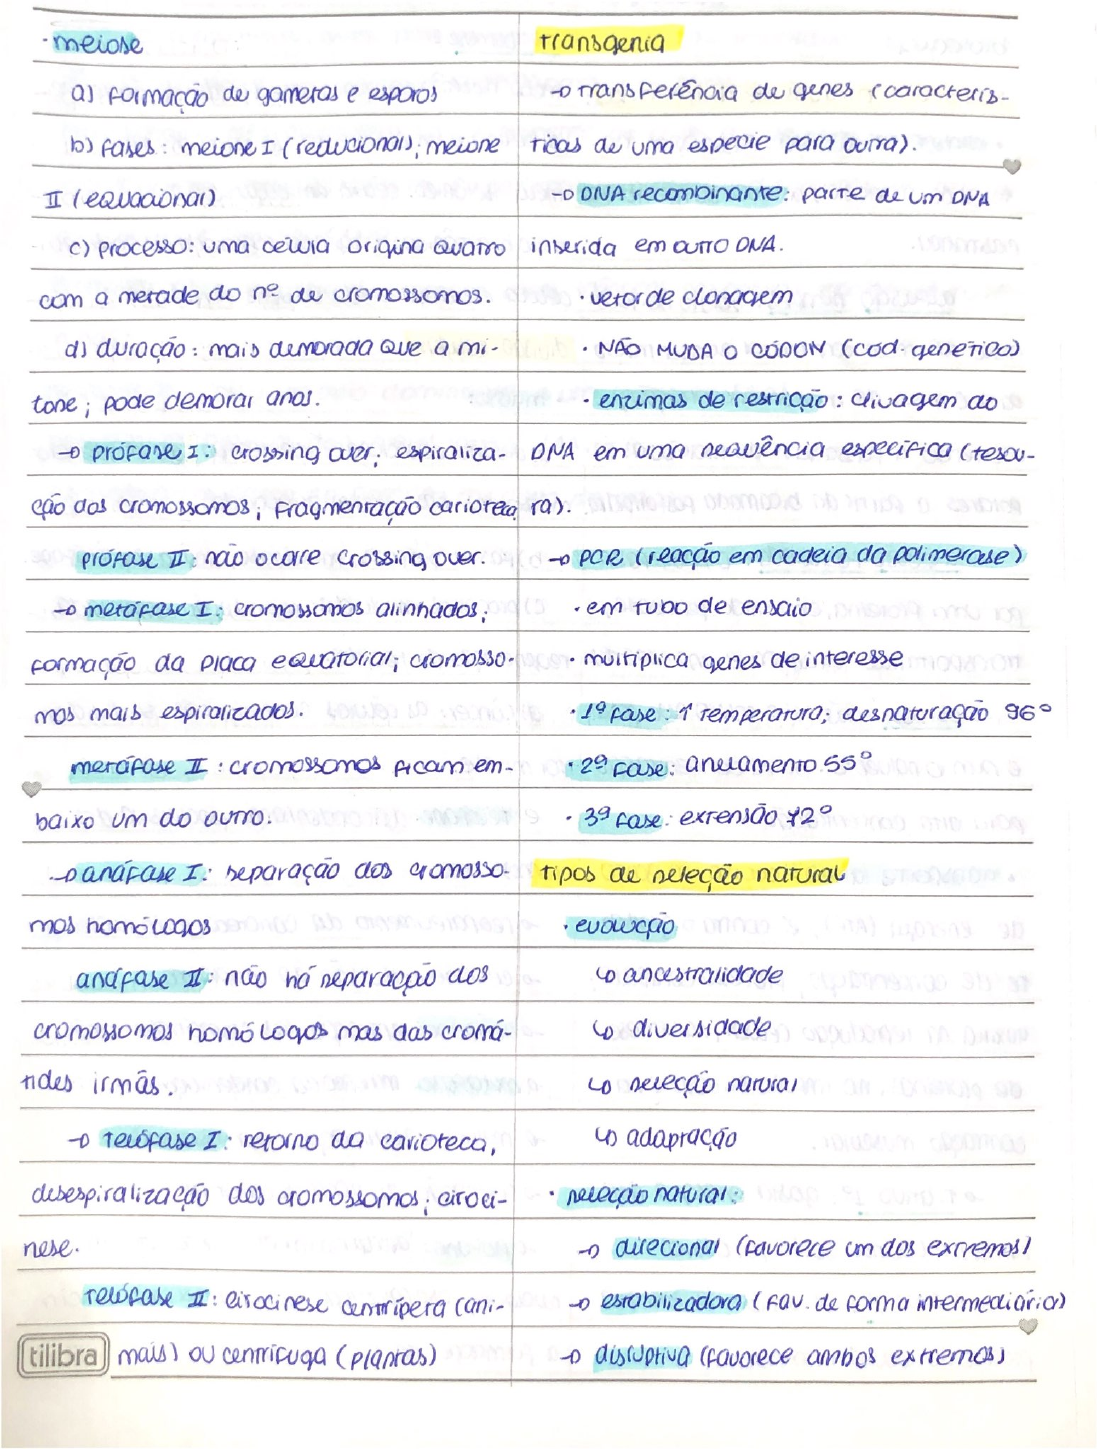 · meiose
a) Formação de gametas e esporos
b) fases: meiose I (reducional); meiose
II (equacional)
c) processo: uma célula origina quatro
com a metade do nº de cromossomos.
d) duração: mais demorada que a mi-
tose; pode demorar anos.
→ prófase I: crossing over; espiraliza-
ção dos cromossomos; fragmentação carioteca
prófase II: não ocorre crossing over.
→ metáfase I: cromossomos alinhados;
formação da placa equatorial; cromosso-
mos mais espiralizados.
metáfase II: cromossomos ficam em-
baixo um do outro.
→ anáfase I: separação dos cromosso-
mos homólogos
anáfase II: não há separação dos
cromossomos homólogos mas das cromá-
tides irmãs.
→ telófase I: retorno da carioteca,
desespiralização dos cromossomos; citoci-
nese.
telófase II: citocinese centrípera (ani-
mais) ou centrífuga (plantas)
tilibra
transgenia
→ transferência de genes (caracterís-
ticas de uma especie para outra).
→ DNA recombinante: parte de um DNA
inserida em outro DNA.
· vetor de clonagem
· NÃO MUDA O CÓDON (cód. genético)
· enzimas de restrição: clivagem do
DNA em uma sequência específica (tesou-
ra).
→ PCR (reação em cadeia da polimerase)
· em tubo de ensaio
· multiplica genes de interesse
· 1ª fase: ↑ temperatura; desnaturação 96°
· 2ª fase: anelamento 55°
· 3ª fase: extensão 72°
tipos de seleção natural
· evolução
↳ ancestralidade
↳ diversidade
↳ seleção natural
↳ adaptação
· seleção natural:
→ direcional (favorece um dos extremos)
→ estabilizadora (fav. de forma intermediária)
→ disruptiva (favorece ambos extremos)